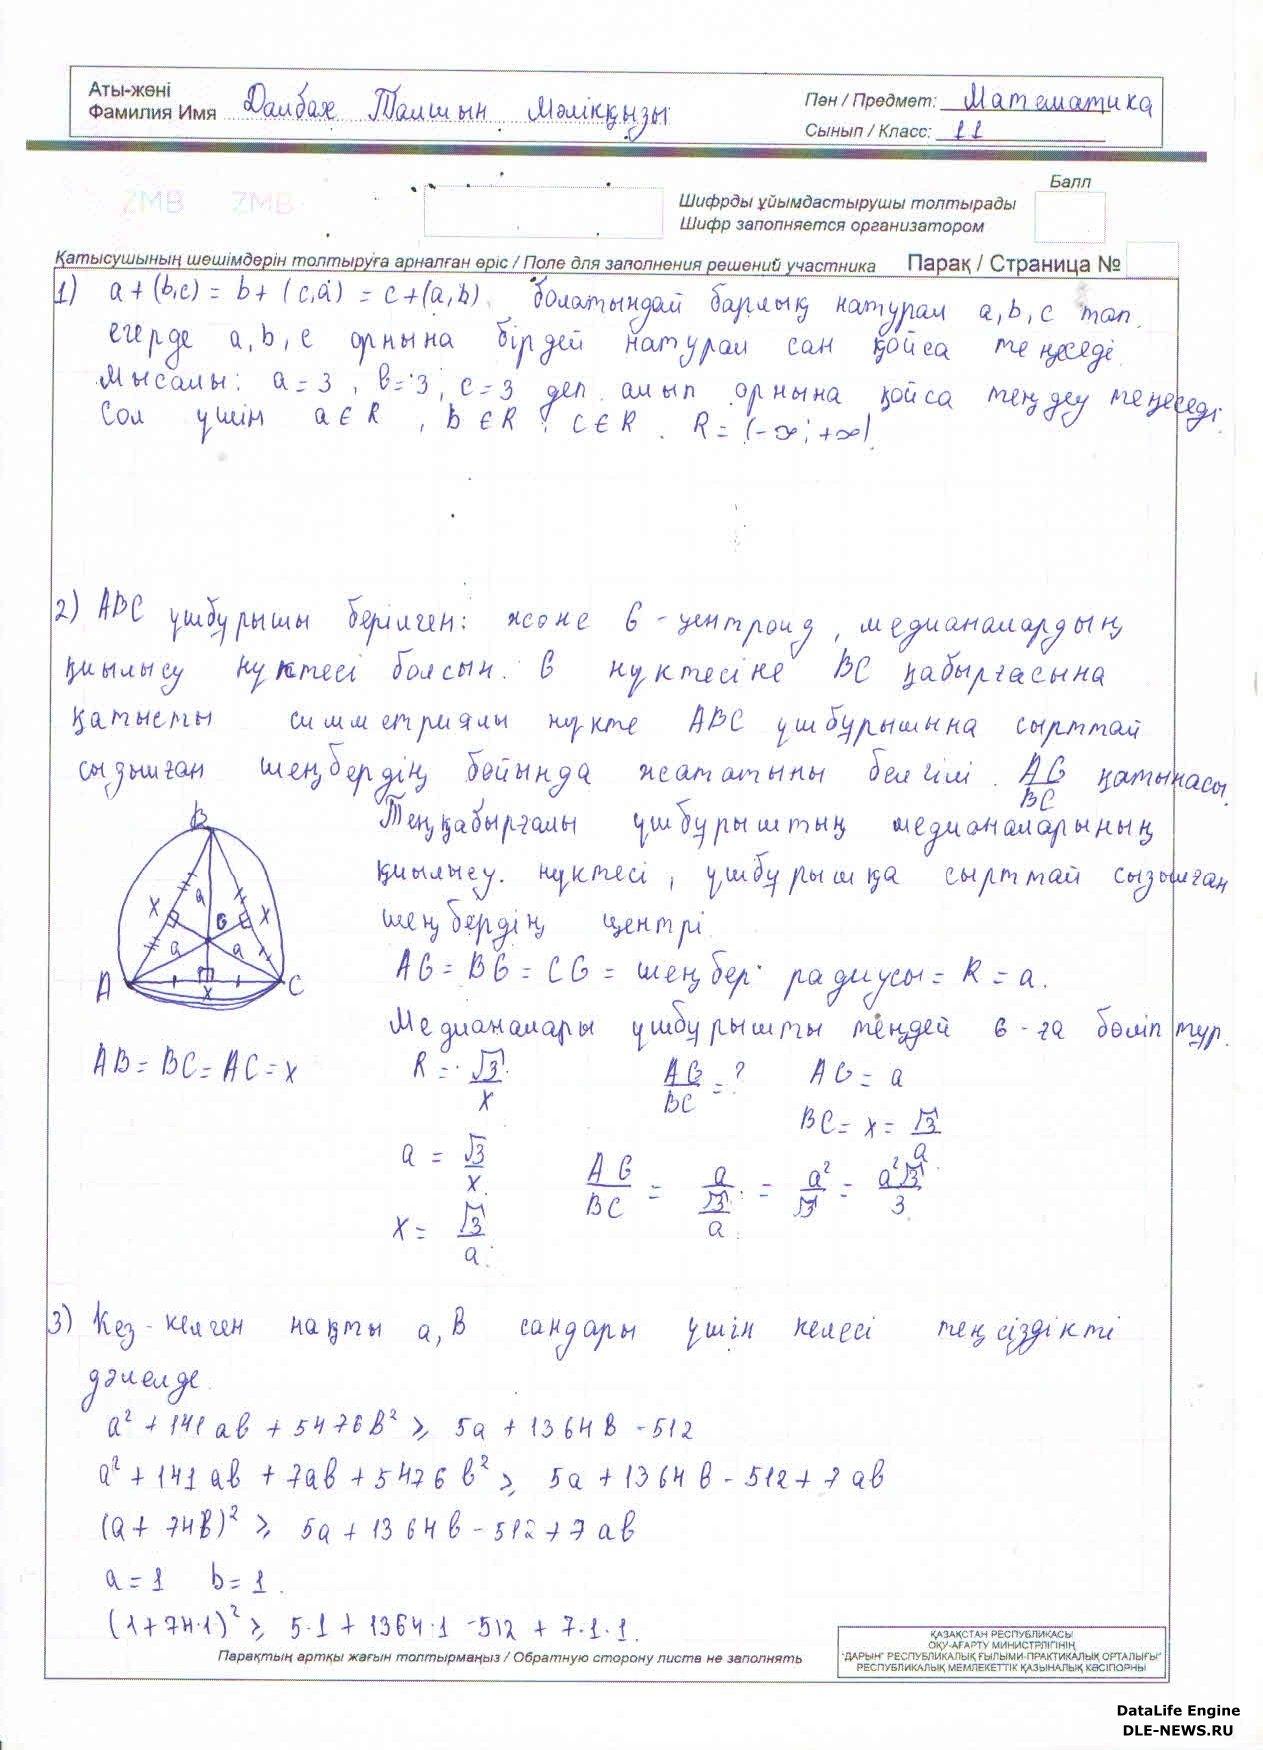 Аты-жөні
Фамилия Имя Далбах Талшын Мәлікқызы
Пән / Предмет: Математика
Сынып / Класс: 11
ZMB ZMB
Балл
Шифрды ұйымдастырушы толтырады
Шифр заполняется организатором
Қатысушының шешімдерін толтыруға арналған өріс / Поле для заполнения решений участника Парақ / Страница №
1) a + (b,c) = b + (c,a) = c + (a,b) болатындай барлық натурал a, b, c тап.
егерде a, b, c орнына бірдей натурал сан қойса теңеседі.
Мысалы: a = 3, b = 3, c = 3 деп алып орнына қойса теңдеу теңеседі.
Сол үшін a ∈ R, b ∈ R, c ∈ R. R = (-∞; +∞)
2) ABC үшбұрышы берілген: және G - центроид, медианалардың
қиылысу нүктесі болсын. G нүктесіне BC қабырғасына
қатысты симметриялы нүкте ABC үшбұрышына сырттай
сызылған шеңбердің бойында жататыны белгілі. AG/BC қатынасы.
Теңқабырғалы үшбұрыштың медианаларының
қиылысу нүктесі, үшбұрышқа сырттай сызылған
шеңбердің центрі
B
x a G x
a a
A x C
AG = BG = CG = шеңбер радиусы = R = a.
Медианалары үшбұрышты теңдей 6-ға бөліп тұр.
AB = BC = AC = x R = √3/x AG/BC = ? AG = a
BC = x = √3/a
a = √3/x AG/BC = a/(√3/a) = a²/√3 = a²√3/3
x = √3/a
3) Кез-келген нақты a, b сандары үшін келесі теңсіздікті
дәлелде.
a² + 141ab + 5476b² ≥ 5a + 1364b - 512
a² + 141ab + 7ab + 5476b² ≥ 5a + 1364b - 512 + 7ab
(a + 74b)² ≥ 5a + 1364b - 512 + 7ab
a = 1 b = 1.
(1 + 74·1)² ≥ 5·1 + 1364·1 - 512 + 7·1·1.
Парақтың артқы жағын толтырмаңыз / Обратную сторону листа не заполнять
ҚАЗАҚСТАН РЕСПУБЛИКАСЫ
ОҚУ-АҒАРТУ МИНИСТРЛІГІНІҢ
"ДАРЫН" РЕСПУБЛИКАЛЫҚ ҒЫЛЫМИ-ПРАКТИКАЛЫҚ ОРТАЛЫҒЫ"
РЕСПУБЛИКАЛЫҚ МЕМЛЕКЕТТІК ҚАЗЫНАЛЫҚ КӘСІПОРНЫ
DataLife Engine
DLE-NEWS.RU